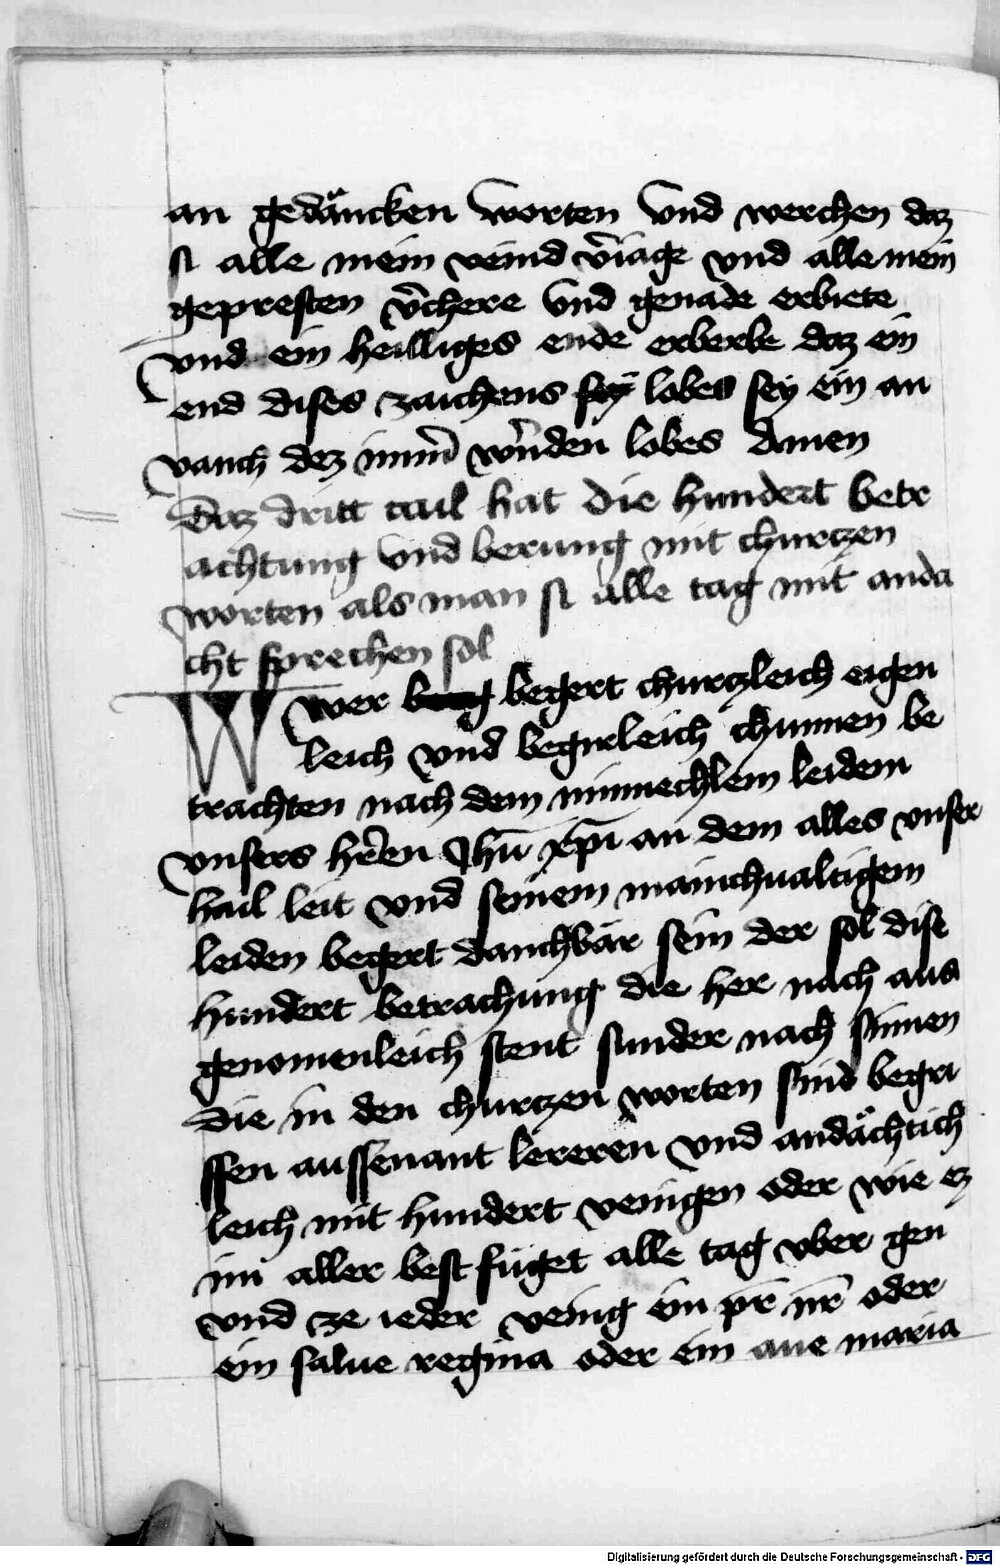 an gedäncken worten vnd werchen daz
si alle mein veind v̄iage vnd alle mein
gepresten v̄chere vnd genade erbiete
vnd ein heilliges ende erberbe daz ein
end dises zaichens sey lobes sey ein an
vanch dez imm̄ w̄nden lobes Amen
Daz dritt tail hat die hundert betr
achtung vnd berung mit churczen
worten als man si alle tag mit anda
cht sprechen sol
Wwer begert churczleich eigen
leich vnd begirleich chunnen be
trachten nach dem minnechlem leidem
vnsers hr̄en Jhū xp̄i an dem alles vnser
hail leit vnd seinem mainchualtigem
leiden begert danchbär sein der sol dise
hundert betrachung die her nach aus
genomenleich stent sunder nach sinnen
die in den churczen worten sind begri
ssen aussenant lereren vnd andächtich
leich mit hundert venigen oder wie ez
im aller best füget alle tag vber gen
vnd ze ieder venig ein pr̄ nr̄ oder
ein salue regina oder ein aue maria
Digitalisierung gefördert durch die Deutsche Forschungsgemeinschaft - DFG